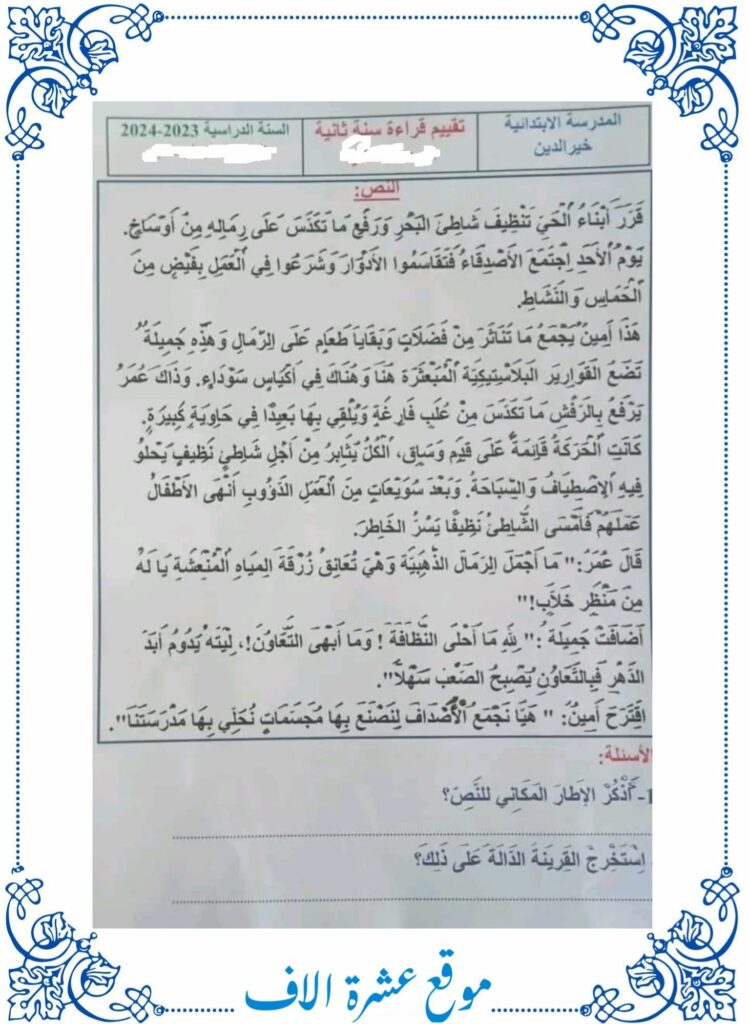 المدرسة الابتدائية
خير الدين
تقييم قراءة سنة ثانية
السنة الدراسية 2023-2024
النص:
قَرَّرَ أَبْنَاءُ الْحَيِّ تَنْظِيفَ شَاطِئِ الْبَحْرِ وَرَفْعِ مَا تَكَدَّسَ عَلَى رِمَالِهِ مِنْ أَوْسَاخٍ.
يَوْمُ الْأَحَدِ اِجْتَمَعَ الأَصْدِقَاءُ فَتَقَاسَمُوا الأَدْوَارَ وَشَرَعُوا فِي الْعَمَلِ بِفَيْضٍ مِنَ
الْحَمَاسِ وَالنَّشَاطِ.
هَذَا أَمِينٌ يَجْمَعُ مَا تَنَاثَرَ مِنْ فَضَلَاتٍ وَبَقَايَا طَعَامٍ عَلَى الرِّمَالِ وَهَذِهِ جَمِيلَةُ
تَضَعُ القَوَارِيرَ البَلَاسْتِيكِيَّةَ الْمُبَعْثَرَةَ هُنَا وَهُنَاكَ فِي أَكْيَاسٍ سَوْدَاءٍ. وَذَاكَ عُمَرُ
يَرْفَعُ بِالرَّفْشِ مَا تَكَدَّسَ مِنْ عُلَبٍ فَارِغَةٍ وَيُلْقِي بِهَا بَعِيدًا فِي حَاوِيَةٍ كَبِيرَةٍ.
كَانَتِ الْحَرَكَةُ قَائِمَةً عَلَى قَدَمٍ وَسَاقٍ، الْكُلُّ يُثَابِرُ مِنْ أَجْلِ شَاطِئٍ نَظِيفٍ يَحْلُو
فِيهِ الِاصْطِيَافُ وَالسِّبَاحَةُ. وَبَعْدَ سُوَيْعَاتٍ مِنَ الْعَمَلِ الدَّؤُوبِ أَنْهَى الأَطْفَالُ
عَمَلَهُمْ فَأَمْسَى الشَّاطِئُ نَظِيفًا يَسُرُّ الخَاطِرَ.
قَالَ عُمَرُ:" مَا أَجْمَلَ الرِّمَالَ الذَّهَبِيَّةَ وَهْيَ تُعَانِقُ زُرْقَةَ المِيَاهِ الْمُنْعِشَةِ يَا لَهُ
مِنْ مَنْظَرٍ خَلَّابٍ!"
أَضَافَتْ جَمِيلَةُ :" لِلَّهِ مَا أَحْلَى النَّظَافَةَ ! وَمَا أَبْهَى التَّعَاوُنَ!، لَيْتَهُ يَدُومُ أَبَدَ
الدَّهْرِ فَبِالتَّعَاوُنِ يُصْبِحُ الصَّعْبُ سَهْلًا".
اِقْتَرَحَ أَمِينٌ: " هَيَّا نَجْمَعُ الْأَصْدَافَ لِنَصْنَعَ بِهَا مُجَسَّمَاتٍ نُحَلِّي بِهَا مَدْرَسَتَنَا".
الأسئلة:
1- أُذْكُرْ الإِطَارَ المَكَانِي للنَّصِّ؟
اِسْتَخْرِجْ القَرِينَةَ الدَّالَةَ عَلَى ذَلِكَ؟
موقع عشرة الاف